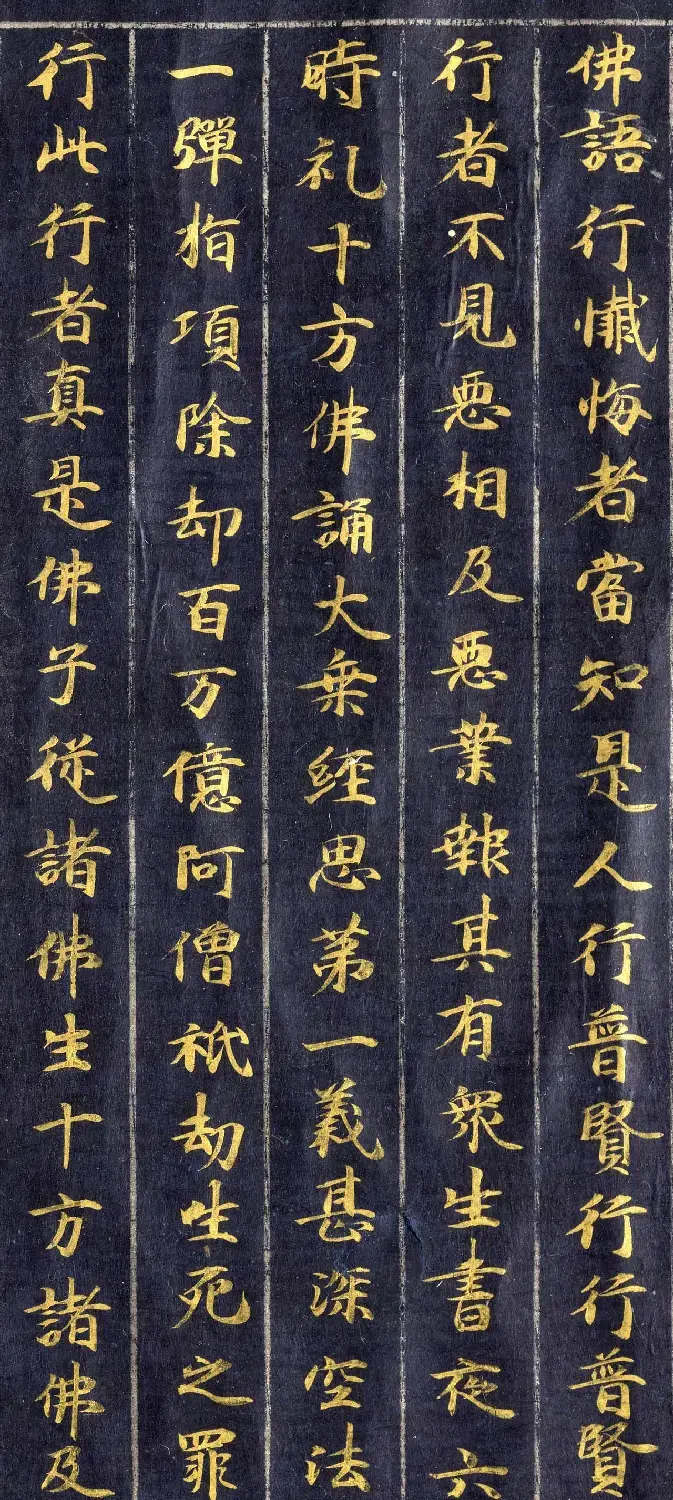 佛語行懺悔者當知是人行普賢行行普賢
行者不見惡相及惡業報其有衆生書夜六
時礼十方佛誦大乗經思第一義甚深空法
一彈指項除却百万億阿僧祇劫生死之罪
行此行者真是佛子從諸佛生十方諸佛及